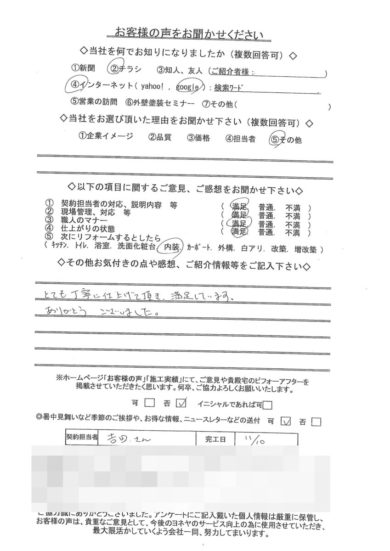 お客様の声をお聞かせください
◇当社を何でお知りになりましたか（複数回答可）◇
①新聞 ②チラシ ③知人、友人（ご紹介者様： ）
④インターネット( yahoo! , google )：検索ワード
⑤営業の訪問 ⑥外壁塗装セミナー ⑦その他( )
◇当社をお選び頂いた理由をお聞かせ下さい（複数回答可）◇
①企業イメージ ②品質 ③価格 ④担当者 ⑤その他
◇以下の項目に関するご意見、ご感想をお聞かせ下さい◇
① 契約担当者の対応、説明内容 等 ( 満足 普通. 不満 )
② 現場管理、対応 等 ( 満足 普通. 不満 )
③ 職人のマナー ( 満足 普通. 不満 )
④ 仕上がりの状態 ( 満足 普通. 不満 )
⑤ 次にリフォームするとしたら
( キッチン. トイレ. 浴室. 洗面化粧台 内装 カーポート. 外構. 白アリ. 改築. 増改築 )
◇その他お気付きの点や感想、ご紹介情報等をご記入下さい◇
とても丁寧に仕上げて頂き、満足しています。
ありがとうございました。
※ホームページ「お客様の声」「施工実績」にて、ご意見や貴殿宅のビフォーアフターを
掲載させていただきたく思います。何卒、ご協力よろしくお願いいたします。
可 □ 否 ☑ イニシャルであれば可□
◎暑中見舞いなど季節のご挨拶や、お得な情報、ニュースレターなどの送付 可 ☑ 否 □
契約担当者 吉田さん 完工日 11/10
ご協力誠にありがとうございました。アンケートにご記入戴いた個人情報は厳重に保管し、
お客様の声は、貴重なご意見として、今後のヨネヤのサービス向上の為に使用させていただき、
最大限活かしていくよう会社一同、努力してまいります。